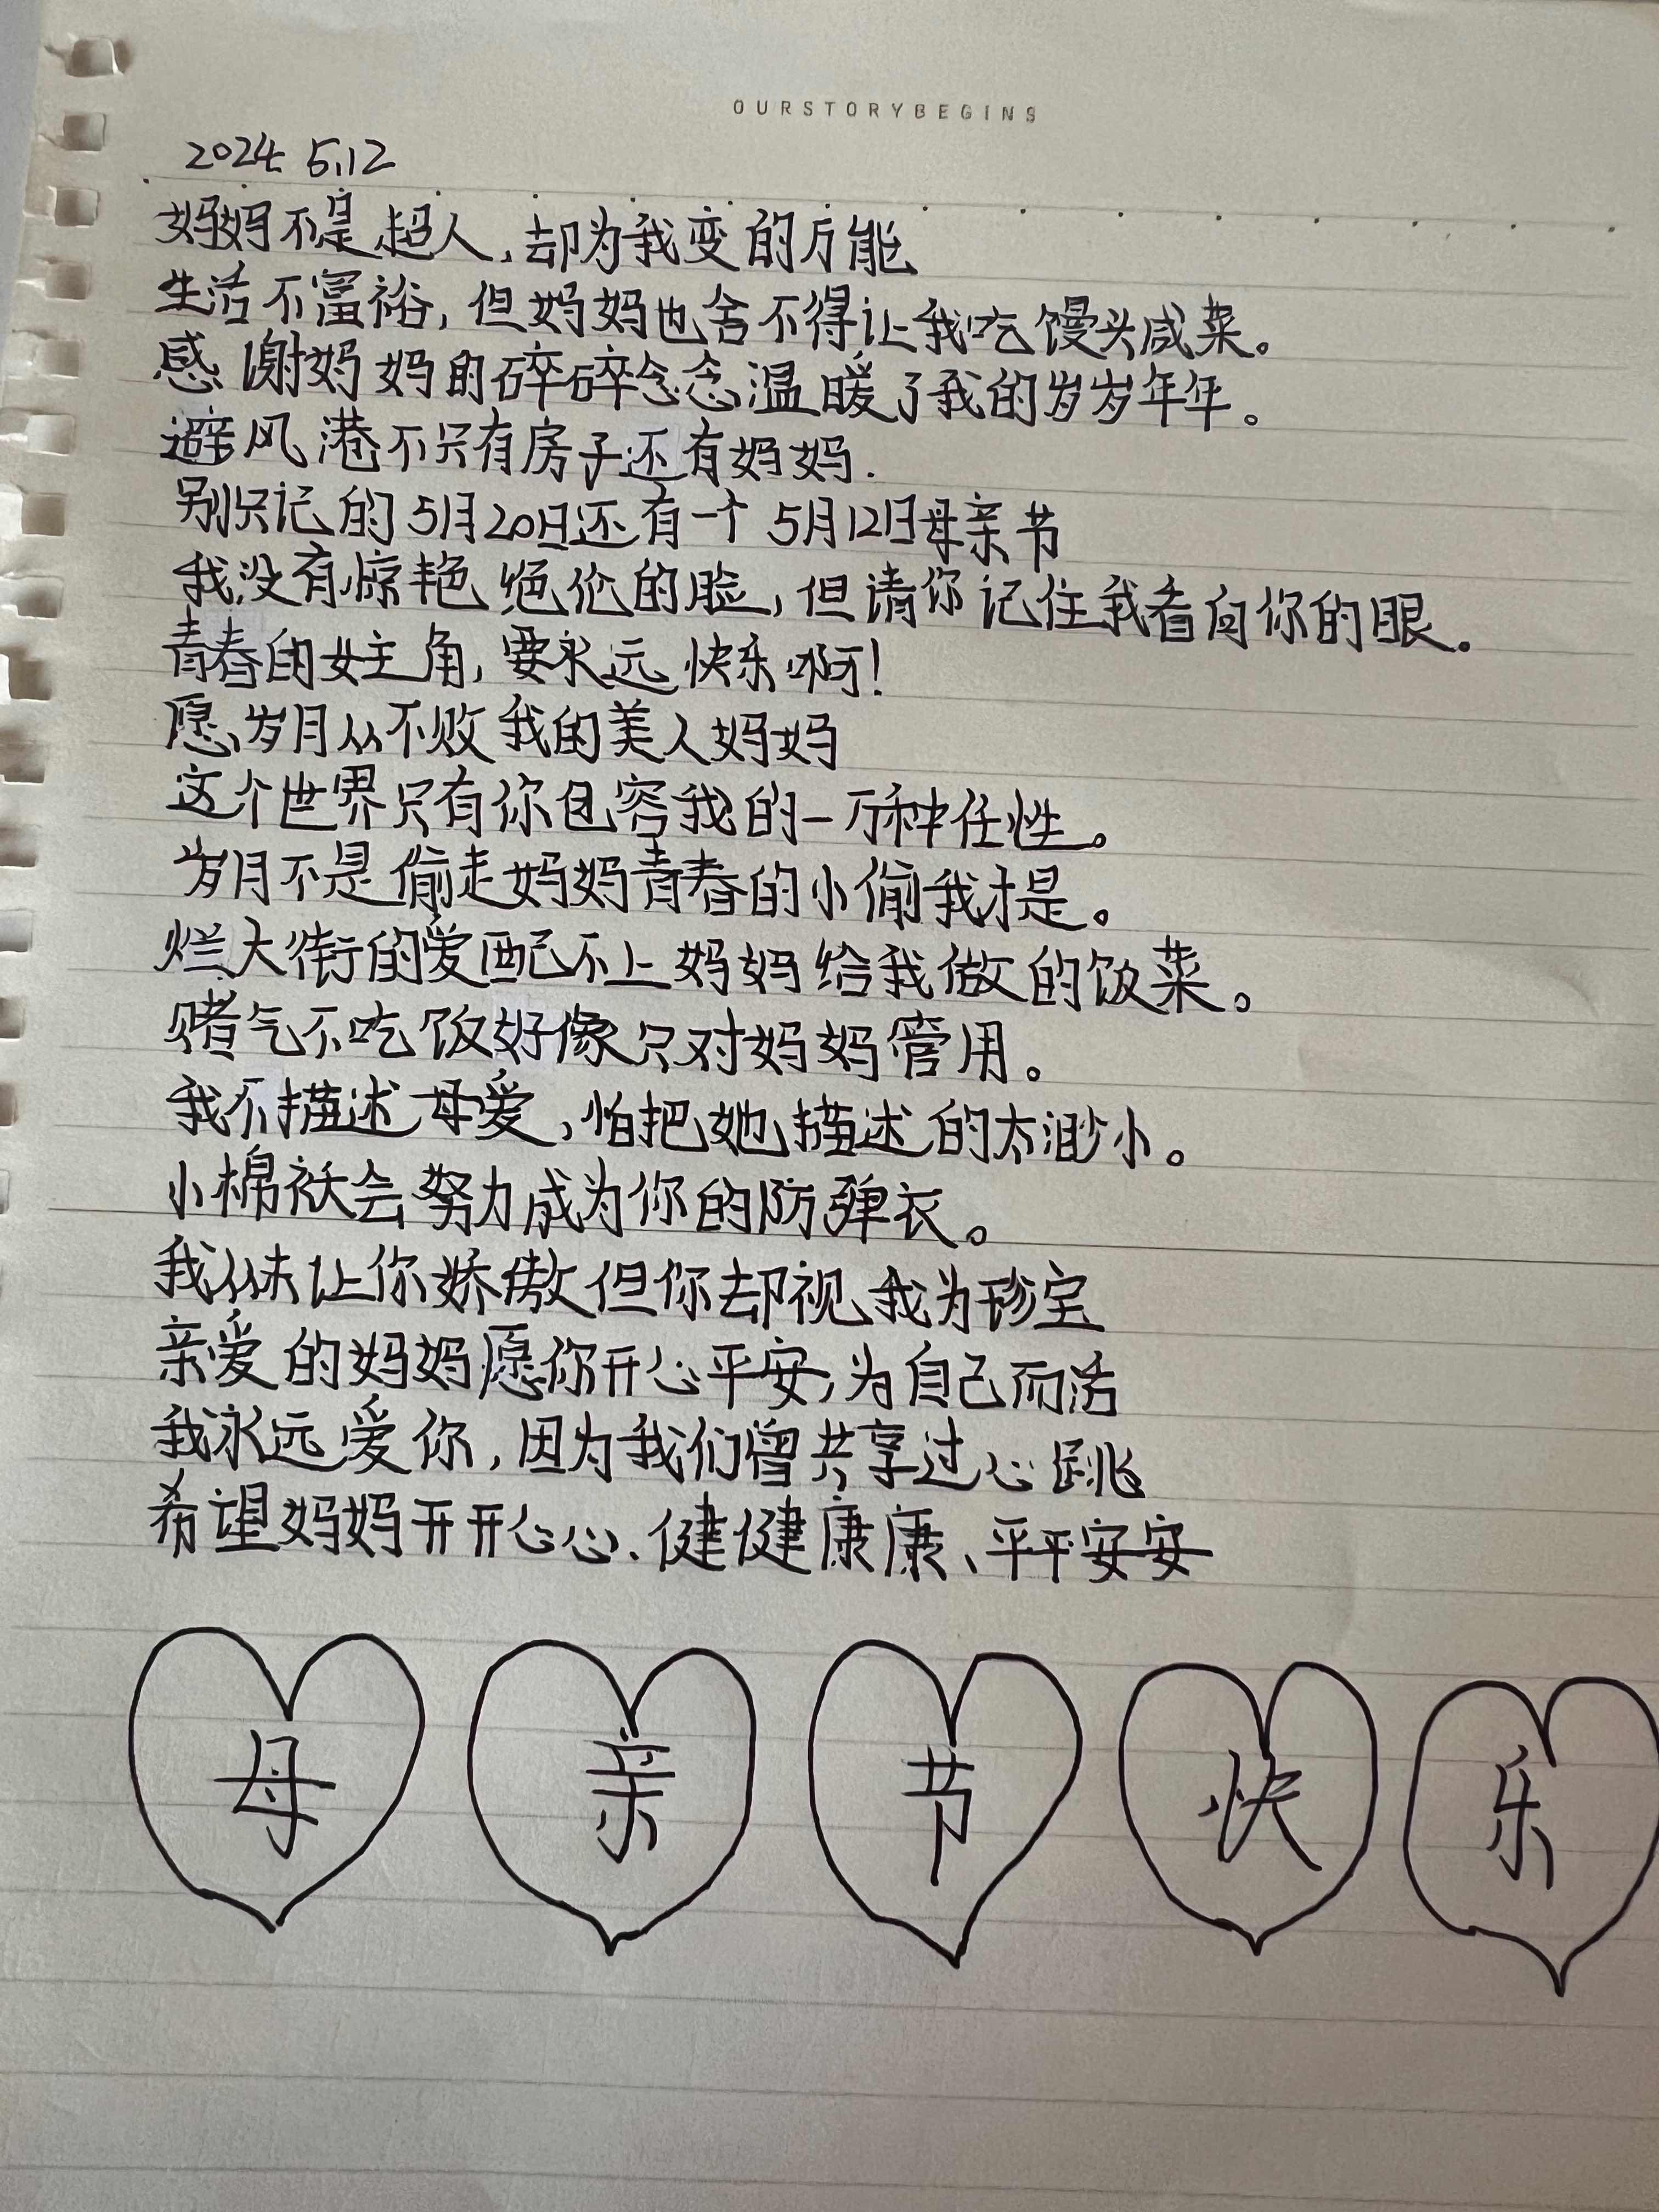 OURSTORYBEGINS
2024 5.12
妈妈不是超人,却为我变的万能
生活不富裕,但妈妈也舍不得让我吃馒头咸菜。
感谢妈妈的碎碎念念温暖了我的岁岁年年。
避风港不只有房子还有妈妈.
别只记的5月20日还有一个5月12日母亲节
我没有惊艳绝伦的脸,但请你记住我看向你的眼。
青春的女主角,要永远快乐啊!
愿岁月从不败我的美人妈妈
这个世界只有你包容我的一万种任性。
岁月不是偷走妈妈青春的小偷我才是。
烂大街的爱配不上妈妈给我做的饭菜。
赌气不吃饭好像只对妈妈管用。
我不描述母爱,怕把她描述的太渺小。
小棉袄会努力成为你的防弹衣。
我从未让你娇傲但你却视我为珍宝
亲爱的妈妈愿你开心平安,为自己而活
我永远爱你,因为我们曾共享过心跳
希望妈妈开开心心、健健康康、平平安安
母 亲 节 快 乐